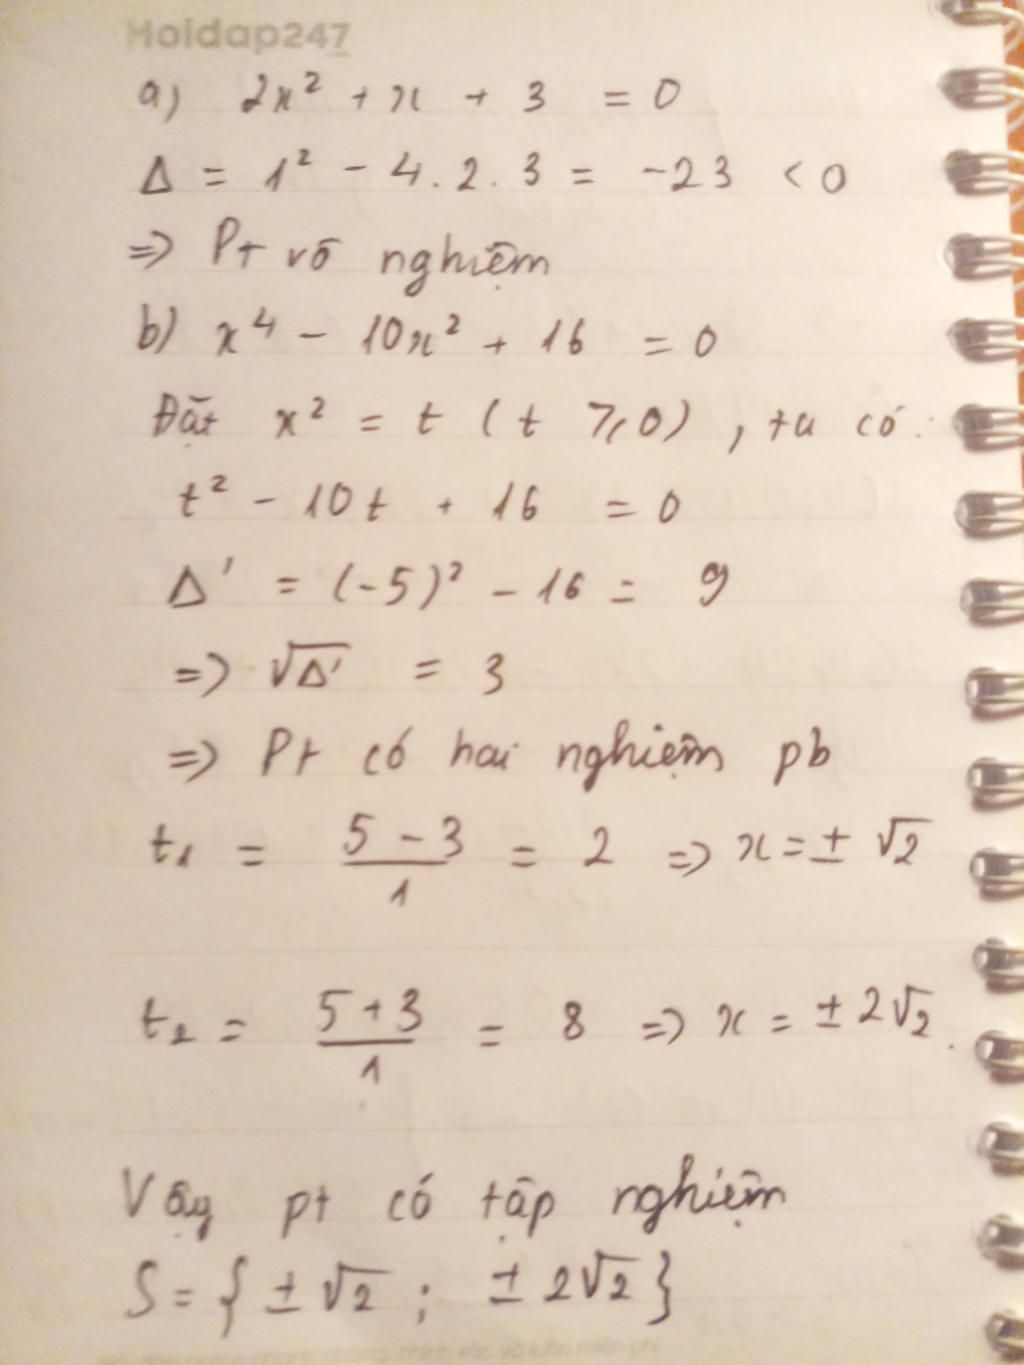 Hoidap247
a) 2x² + x + 3 = 0
Δ = 1² - 4.2.3 = -23 < 0
=> Pt vô nghiệm
b) x⁴ - 10x² + 16 = 0
Đặt x² = t (t ≥ 0), ta có:
t² - 10t + 16 = 0
Δ' = (-5)² - 16 = 9
=> √Δ' = 3
=> Pt có hai nghiệm pb
t₁ = (5 - 3)/1 = 2 => x = ± √2
t₂ = (5 + 3)/1 = 8 => x = ± 2√2.
Vậy pt có tập nghiệm
S = { ± √2 ; ± 2√2 }